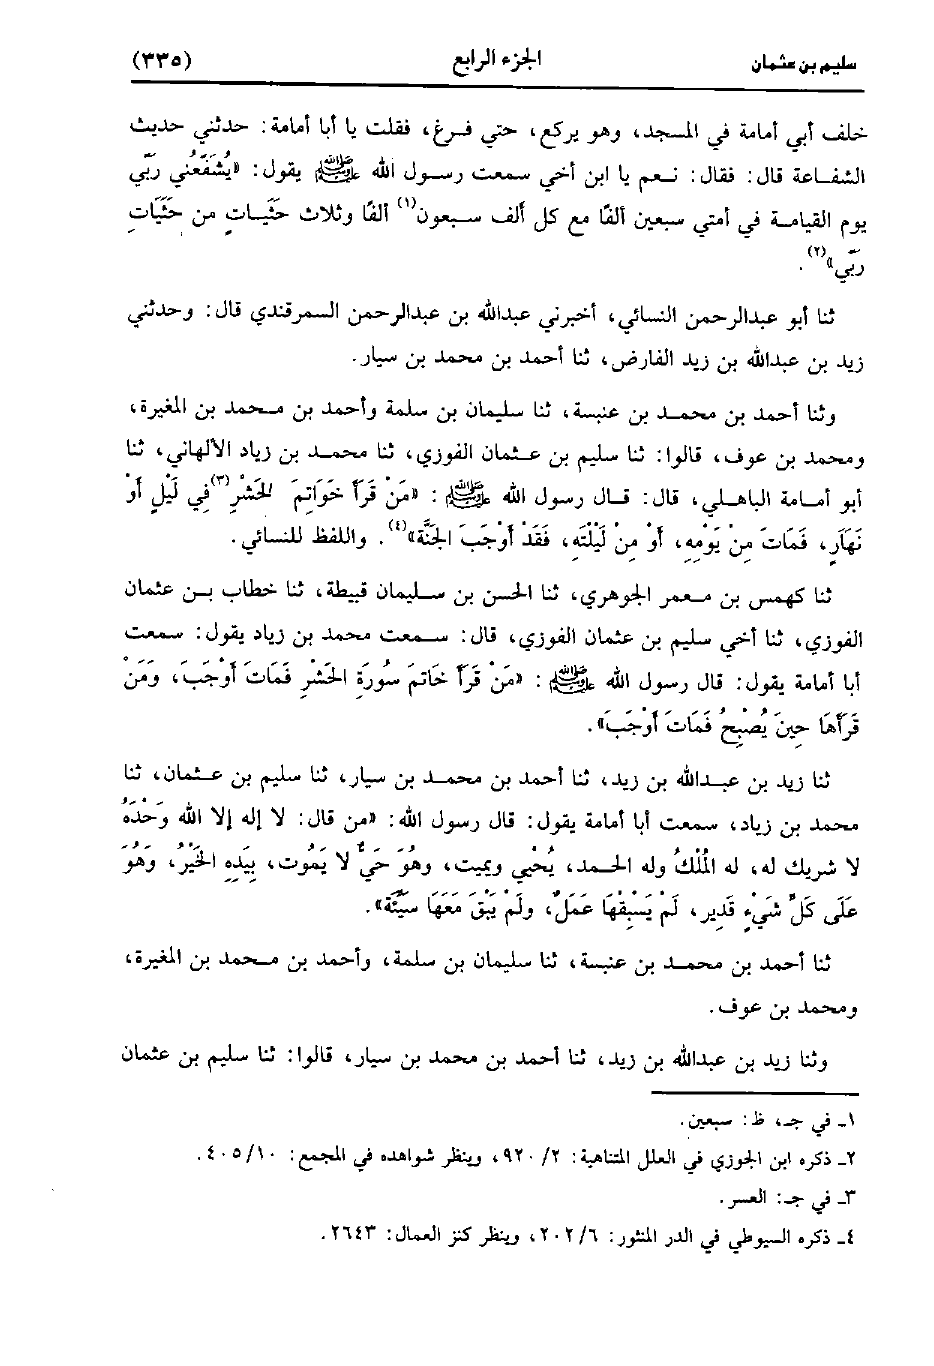 سليم بن عثمان الجزء الرابع (٣٣٥)
خلف أبي أمامة في المسجد، وهو يركع، حتي فرغ، فقلت يا أبا أمامة: حدثني حديث
الشفاعة قال: فقال: نعم يا ابن أخي سمعت رسول الله ﷺ يقول: «يُشَفِّعُني ربِّي
يوم القيامة في أمتي سبعين ألفًا مع كل ألف سبعون(١) ألفًا وثلاث حَثَيات من حَثَيَاتِ
ربِّي»(٢).
ثنا أبو عبدالرحمن النسائي، أخبرني عبدالله بن عبدالرحمن السمرقندي قال: وحدثني
زيد بن عبدالله بن زيد الفارض، ثنا أحمد بن محمد بن سيار.
وثنا أحمد بن محمد بن عنبسة، ثنا سليمان بن سلمة وأحمد بن محمد بن المغيرة،
ومحمد بن عوف، قالوا: ثنا سليم بن عثمان الفوزي، ثنا محمد بن زياد الألهاني، ثنا
أبو أمامة الباهلي، قال: قال رسول الله ﷺ: «مَنْ قَرَأَ خَوَاتِمَ الحَشْرِ(٣) فِي لَيْلٍ أَوْ
نَهَارٍ، فَمَاتَ مِنْ يَوْمِهِ، أو مِنْ لَيْلَتِهِ، فَقَدْ أَوْجَبَ الجَنَّة»(٤). واللفظ للنسائي.
ثنا كهمس بن معمر الجوهري، ثنا الحسن بن سليمان قبيطة، ثنا خطاب بن عثمان
الفوزي، ثنا أخي سليم بن عثمان الفوزي، قال: سمعت محمد بن زياد يقول: سمعت
أبا أمامة يقول: قال رسول الله ﷺ: «مَنْ قَرَأَ خَاتمَ سُورَةِ الحَشْرِ فَمَاتَ أَوْجَبَ، وَمَنْ
قَرَأَهَا حِينَ يُصْبِحُ فَمَاتَ أَوْجَبَ».
ثنا زيد بن عبدالله بن زيد، ثنا أحمد بن محمد بن سيار، ثنا سليم بن عثمان، ثنا
محمد بن زياد، سمعت أبا أمامة يقول: قال رسول الله: «من قال: لا إله إلا الله وَحْدَهُ
لا شريك له، له المُلْكُ وله الحمد، يُحْيي ويميت، وهُوَ حَيٌّ لا يَمُوت، بِيَدِهِ الخَيْرُ، وَهُوَ
عَلَى كَلِّ شَيْءٍ قَدِير، لَمْ يَسْبِقْهَا عَمَلٌ، ولَمْ يَبْقَ مَعَهَا سَيِّئَة».
ثنا أحمد بن محمد بن عنبسة، ثنا سليمان بن سلمة، وأحمد بن محمد بن المغيرة،
ومحمد بن عوف.
وثنا زيد بن عبدالله بن زيد، ثنا أحمد بن محمد بن سيار، قالوا: ثنا سليم بن عثمان
١ـ في جـ، ظ: سبعين.
٢ـ ذكره ابن الجوزي في العلل المتناهية: ٢/ ٩٢٠، وينظر شواهده في المجمع: ١٠/ ٤٠٥.
٣ـ في جـ: العسر.
٤ـ ذكره السيوطي في الدر المنثور: ٦/ ٢٠٢، وينظر كنز العمال: ٢٦٤٣.